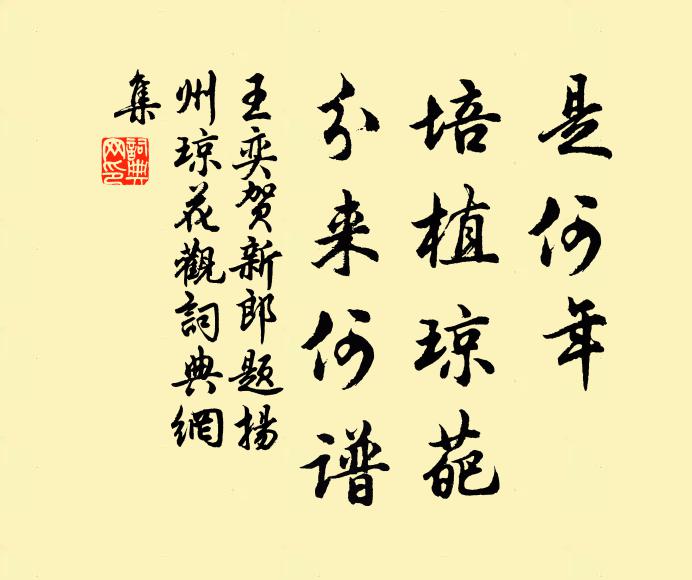 是何年
培植琼葩
分来何谱
王奕贺新郎题揚
州琼花觀詞典網
集
詞典
网印